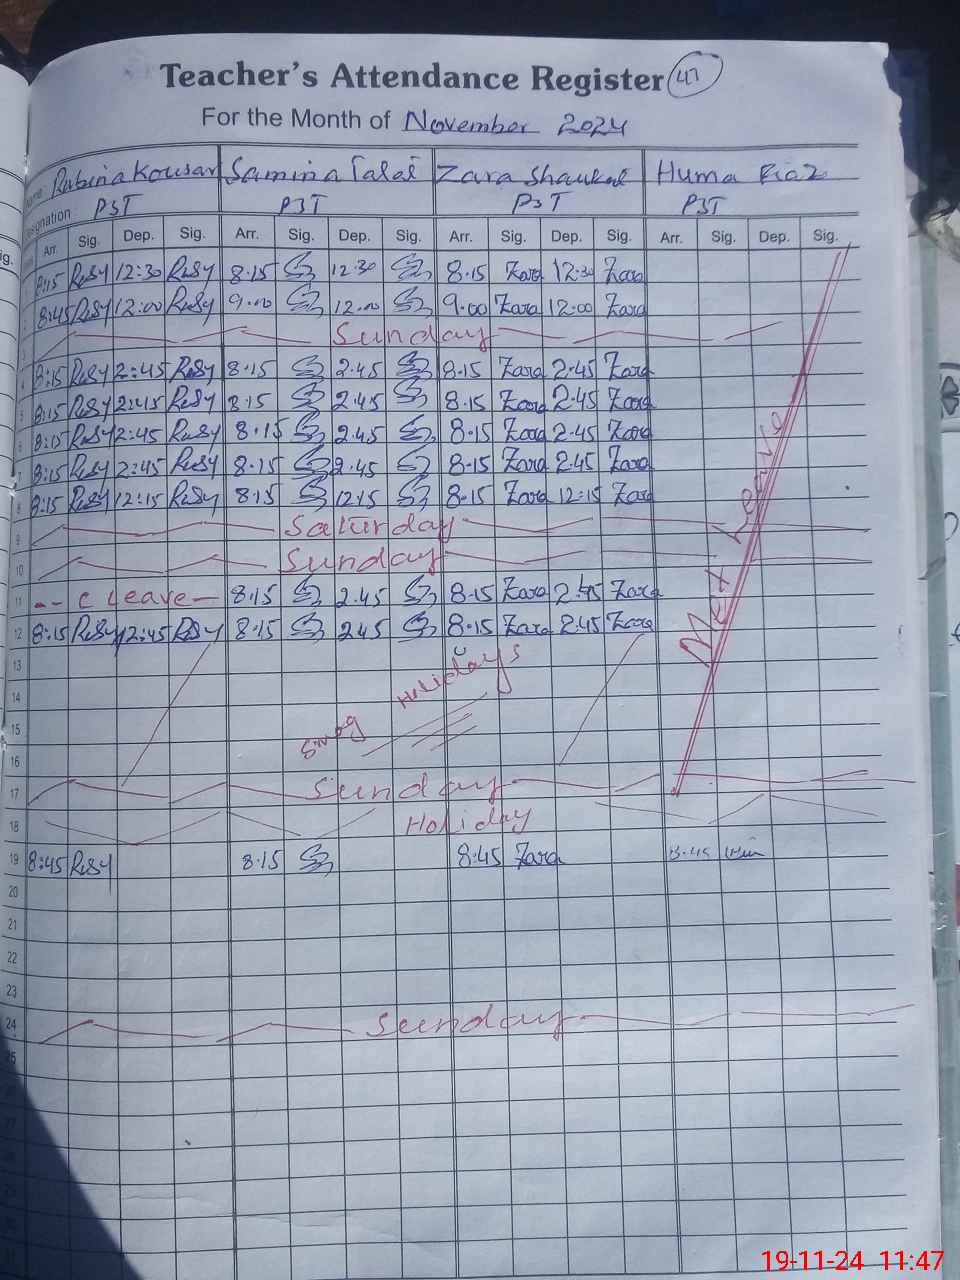 Teacher's Attendance Register 47
For the Month of November 2024
Name Rubina Kousar Samina Talat Zara Shaukat Huma Riaz
Designation PST PST PST PST
Arr. Sig. Dep. Sig. Arr. Sig. Dep. Sig. Arr. Sig. Dep. Sig. Arr. Sig. Dep. Sig.
8:15 RuSy 12:30 RuSy 8.15 12.30 8.15 Zara 12:30 Zara
8:45 RuSy 12:00 RuSy 9.00 12.00 9.00 Zara 12:00 Zara
3 Sunday
4 8:15 RuSy 2:45 RuSy 8.15 2.45 8.15 Zara 2.45 Zara
5 8:15 RuSy 2:45 RuSy 8.15 2.45 8.15 Zara 2.45 Zara
6 8:15 RuSy 2:45 RuSy 8.15 2.45 8.15 Zara 2.45 Zara
7 8:15 RuSy 2:45 RuSy 8.15 2.45 8.15 Zara 2.45 Zara
8 8:15 RuSy 12:15 RuSy 8.15 12.15 8.15 Zara 12:15 Zara
9 Saturday
10 Sunday
11 C Leave 8.15 2.45 8.15 Zara 2.45 Zara
12 8:15 RuSy 2:45 RuSy 8.15 2.45 8.15 Zara 2.45 Zara
Leave
13
14
15
16
Smog Holidays
17 Sunday
18 Holiday
19 8:45 RuSy 8.15 8:45 Zara 8.45
20
21
22
23
24 Sunday
25
19-11-24 11:47